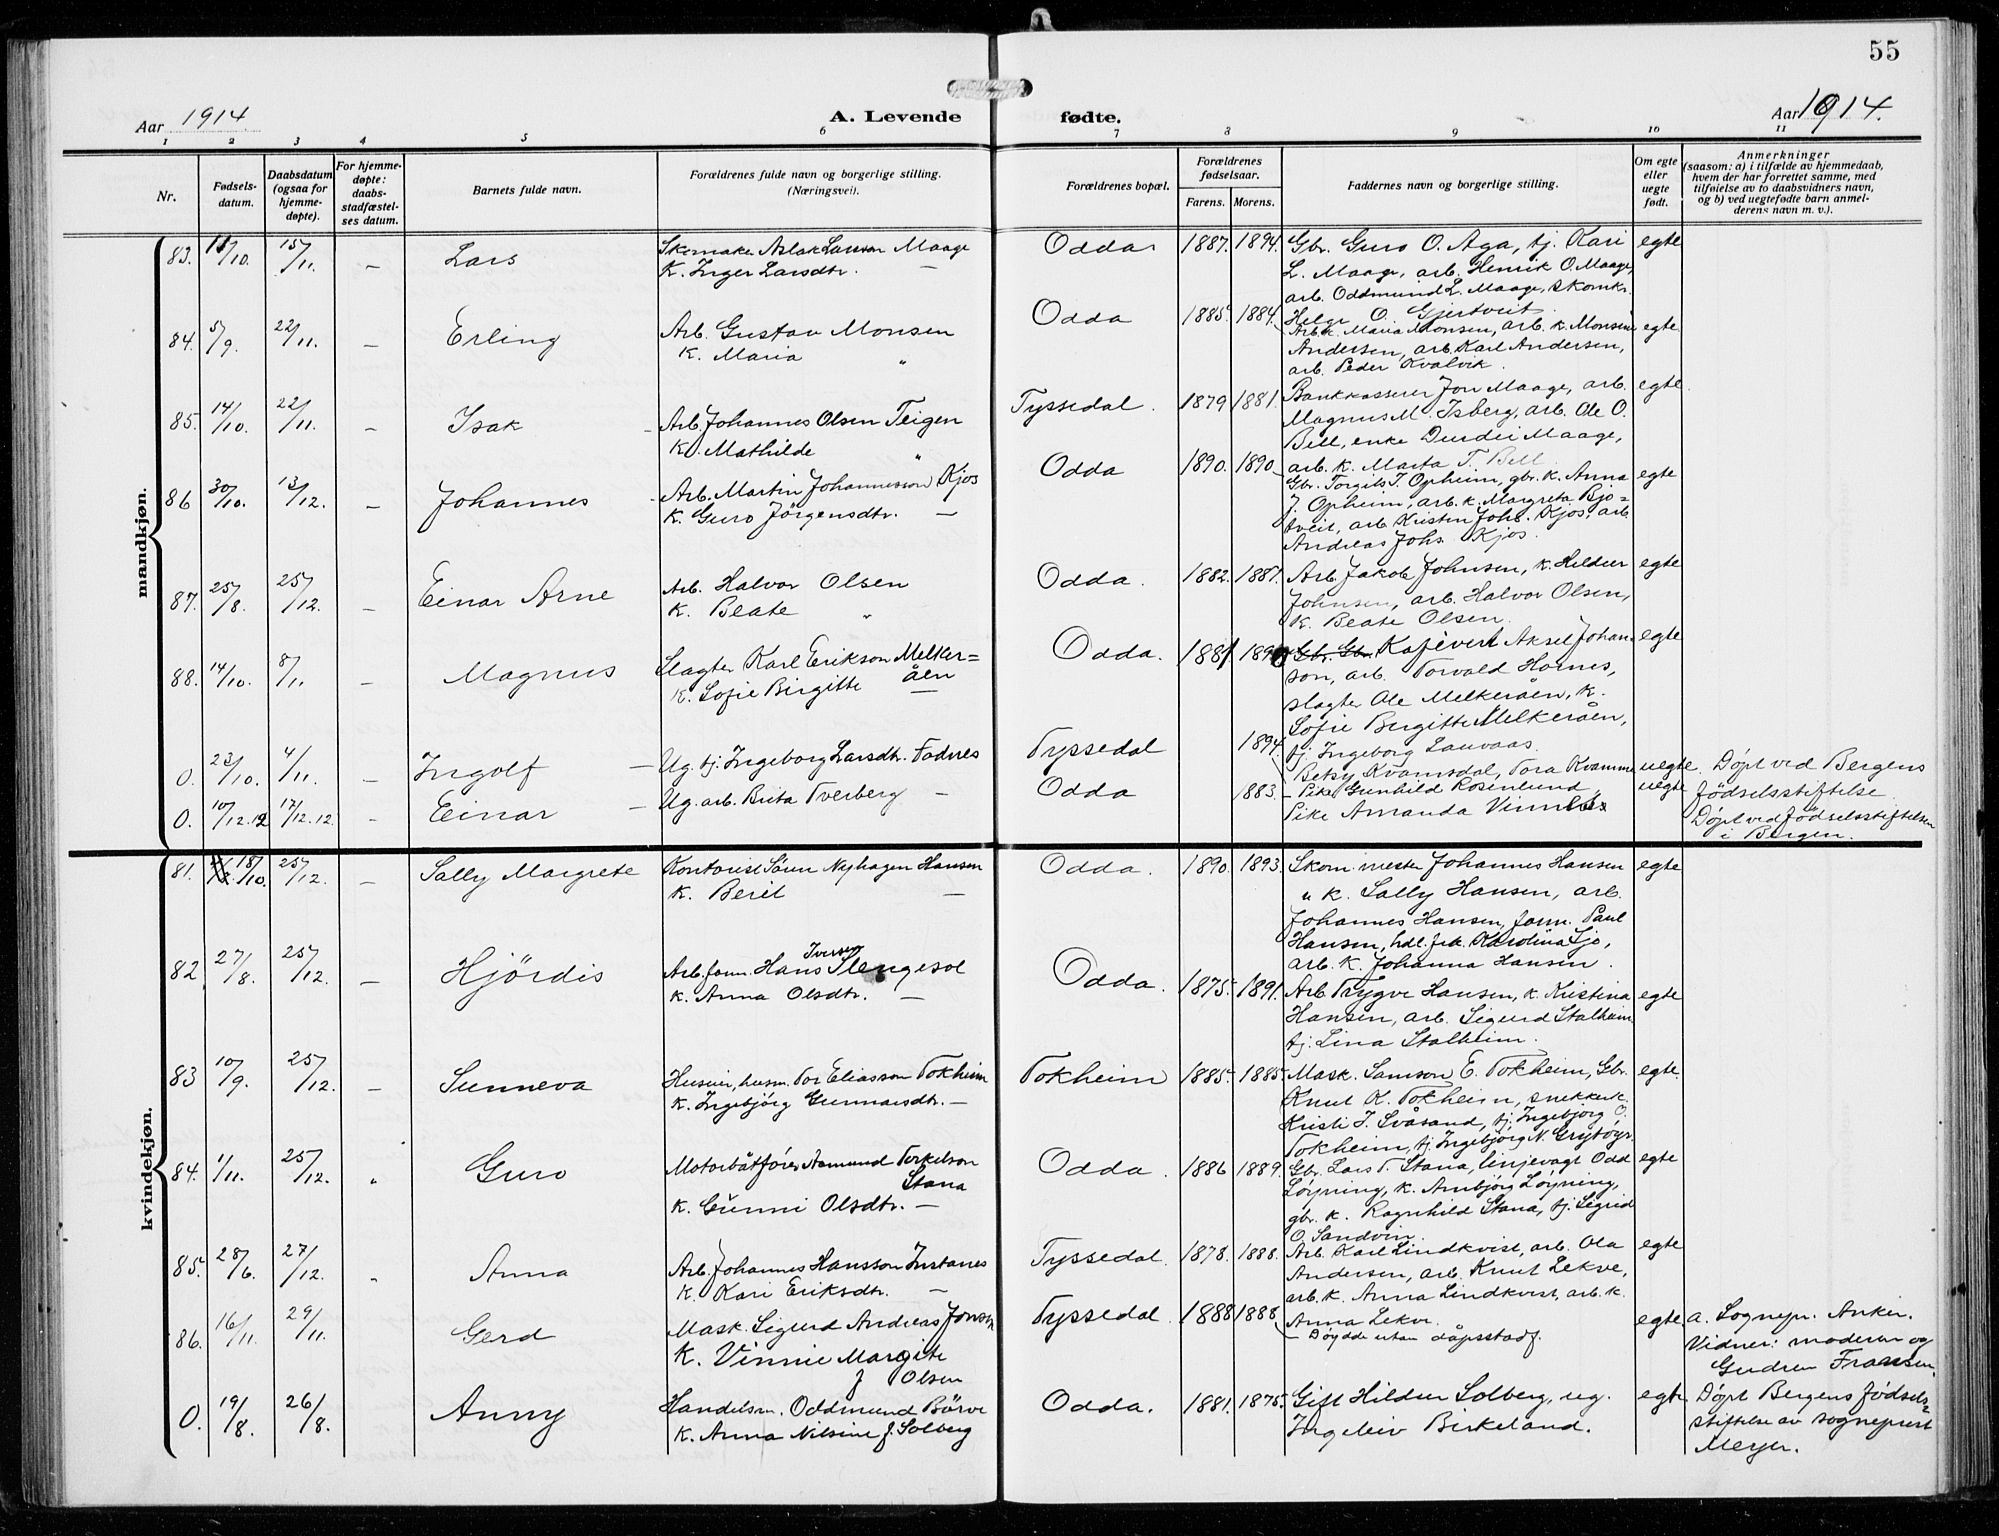 55
Aar 1914
A. Levende
fødte.
Aar 1914.
1 2 3 4 5 6 7 8 9 10 11
Nr.
Fødsels-
datum.
Daabsdatum
(ogsaa for
hjemme-
døpte).
For hjemme-
døpte:
daabs-
stadfæstel-
ses datum.
Barnets fulde navn.
Forældrenes fulde navn og borgerlige stilling.
(Næringsvei).
Forældrenes bopæl.
Forældrenes
fødselsaar.
Farens. Morens.
Faddernes navn og borgerlige stilling.
Om egte
eller
uegte
født.
Anmerkninger
(saasom: a) i tilfælde av hjemmedaab,
hvem der har forrettet samme, med
tilføielse av to daabsvidners navn,
og b) ved uegtefødte barn anmel-
derens navn m. v.).
mandkjøn.
83. 11/10. 15/11. – Lars
Skomaker Aslak Larsen Maage
K. Inger Larsdtr. –
Odda 1887. 1894.
Gbr. Guro O. Aga, tj. Kari
L. Maage, arb. Henrik O. Maage,
arb. Oddmund L. Maage, skomkr.
Helge O. Gjertveit.
egte
84. 5/9. 22/11. – Erling
Arb. Gustav Monsen
K. Maria "
Odda 1885. 1884.
Arb.k. Maria Monsen, arb. K. Monsine
Andersen, arb. Karl Andersen,
arb. Peder Kvalvik.
egte
85. 14/10. 22/11. – Isak
Arb. Johannes Olsen Teigen
K. Mathilde "
Tyssedal. 1879 1881.
Bankkasserer Jon Maage, arb.
Magnus M. Isberg, arb. Ole O.
Bell, enke Durdei Maage,
arb. k. Marta T. Bell
egte.
86 30/10. 13/12. – Johannes
Arb. Martin Johannesson Kjos
K. Guro Jörgensdtr. –
Odda 1890. 1890
Gbr. Torgils T. Opheim, gbr. k. Anna
J. Opheim, arb. k. Margreta Bjo=
tveit, arb. Kristen Johs. Kjos, arb.
Andreas Johs. Kjos.
egte
87. 25/8. 25/12. – Einar Arne
Arb. Halvor Olsen
K. Beate "
Odda. 1882. 1887.
Arb. Jakob Johnsen, k. Hildur
Johnsen, arb. Halvor Olsen,
k. Beate Olsen.
egte
88. 14/10. 8/11. – Magnus
Slagter Karl Erikson Melker=
åen
K. Sofie Birgitte –
Odda. 1881 1890
Gbr. Gbr. Kafévert Aksel Johan-
son, arb. Torvald Hornes,
slagter Ole Melkeråen, k.
Sofie Bergitte Melkeråen,
tj. Ingeborg Lauvaas.
egte
0. 23/10. 4/11. – Ingolf
Ug. tj. Ingeborg Larsdtr. Fodnes
Tyssedal 1894.
Betsy Kvamsdal, Tora Kvamme
uegte.
Døpt ved Bergens
fødselsstiftelse
0. 10/12.12 17/12.12. – Einar
Ug. arb. Brita Tverberg –
Odda 1883.
Pike Gunhild Rosenlund
Pike Amanda Vinnes
uegte
Døpt ved fødselsstiftelsen
i Bergen.
kvindekjøn.
81. 18/10. 25/12. – Sally Margrete
Kontorist Sören Nyhagen Hansen
K. Berit –
Odda. 1890. 1893.
Skom. mester Johannes Hansen
" k. Sally Hansen, arb.
Johannes Hansen, form. Paul
Hansen, hdl. frk. Karolina Sjo,
arb. K. Johanna Hansen.
egte
82 27/8. 25/12. – Hjördis
Arb. form. Hans Iverson Slengesol
K. Anna Olsdtr. –
Odda. 1875. 1891.
Arb. Trygve Hansen, k. Kristina
Hansen, arb. Sigurd Stalheim
tj. Lina Stalheim.
egte
83 10/9. 25/12. – Sunneva
Huseier, husm. Tor Eliasson Tokheim
K. Ingebjörg Gunnarsdtr. –
Tokheim 1885. 1885.
Mask. Samson E. Tokheim, Gbr.
Knut K. Tokheim, snekkerk.
Kristi J. Svåsand, tj. Ingebjorg O.
Tokheim, tj. Ingebjörg N. Grytöyr.
egte.
84. 1/11. 25/12. " Guro
Motorbåtförer Aamund Torkelson
Stana
K. Gunni Olsdtr. –
Odda. 1886 1889.
Gbr. Lars T. Stana, linjevagt Odd
Löyning, k. Arnbjörg Löyning,
gbr. k. Ragnhild Stana, tj. Sigrid
O. Sandvin.
egte
85. 28/6. 27/12. " Anna
Arb. Johannes Hansson Instanes
K. Kari Eriksdtr. –
Tyssedal. 1878. 1888.
Arb. Karl Lindkvist, arb. Ola
Andersen, arb. Knut Lekve,
arb. k. Anna Lindkvist, arb. k.
Anna Lekve.
egte
86. 16/11. 29/11. Gerd
Mask. Sigurd Andreas Jonsen
K. Vinnie Margite
f Olsen
Tyssedal. 1888 1888.
– Døydde utan dåpsstadf.
egte.
a. Sognepr. Anker.
Vidner: moderen og
Gudrun Fransen.
0. 19/8. 26/8. Anny
Handelsm. Oddmund Börve
K. Anna Nilsine f. Solberg
Odda. 1881. 1875.
Gift Hildur Solberg, ug.
Ingeleiv Birkeland.
egte
Døpt Bergens fødsels=
stiftelse av sogneprest
Meyer.